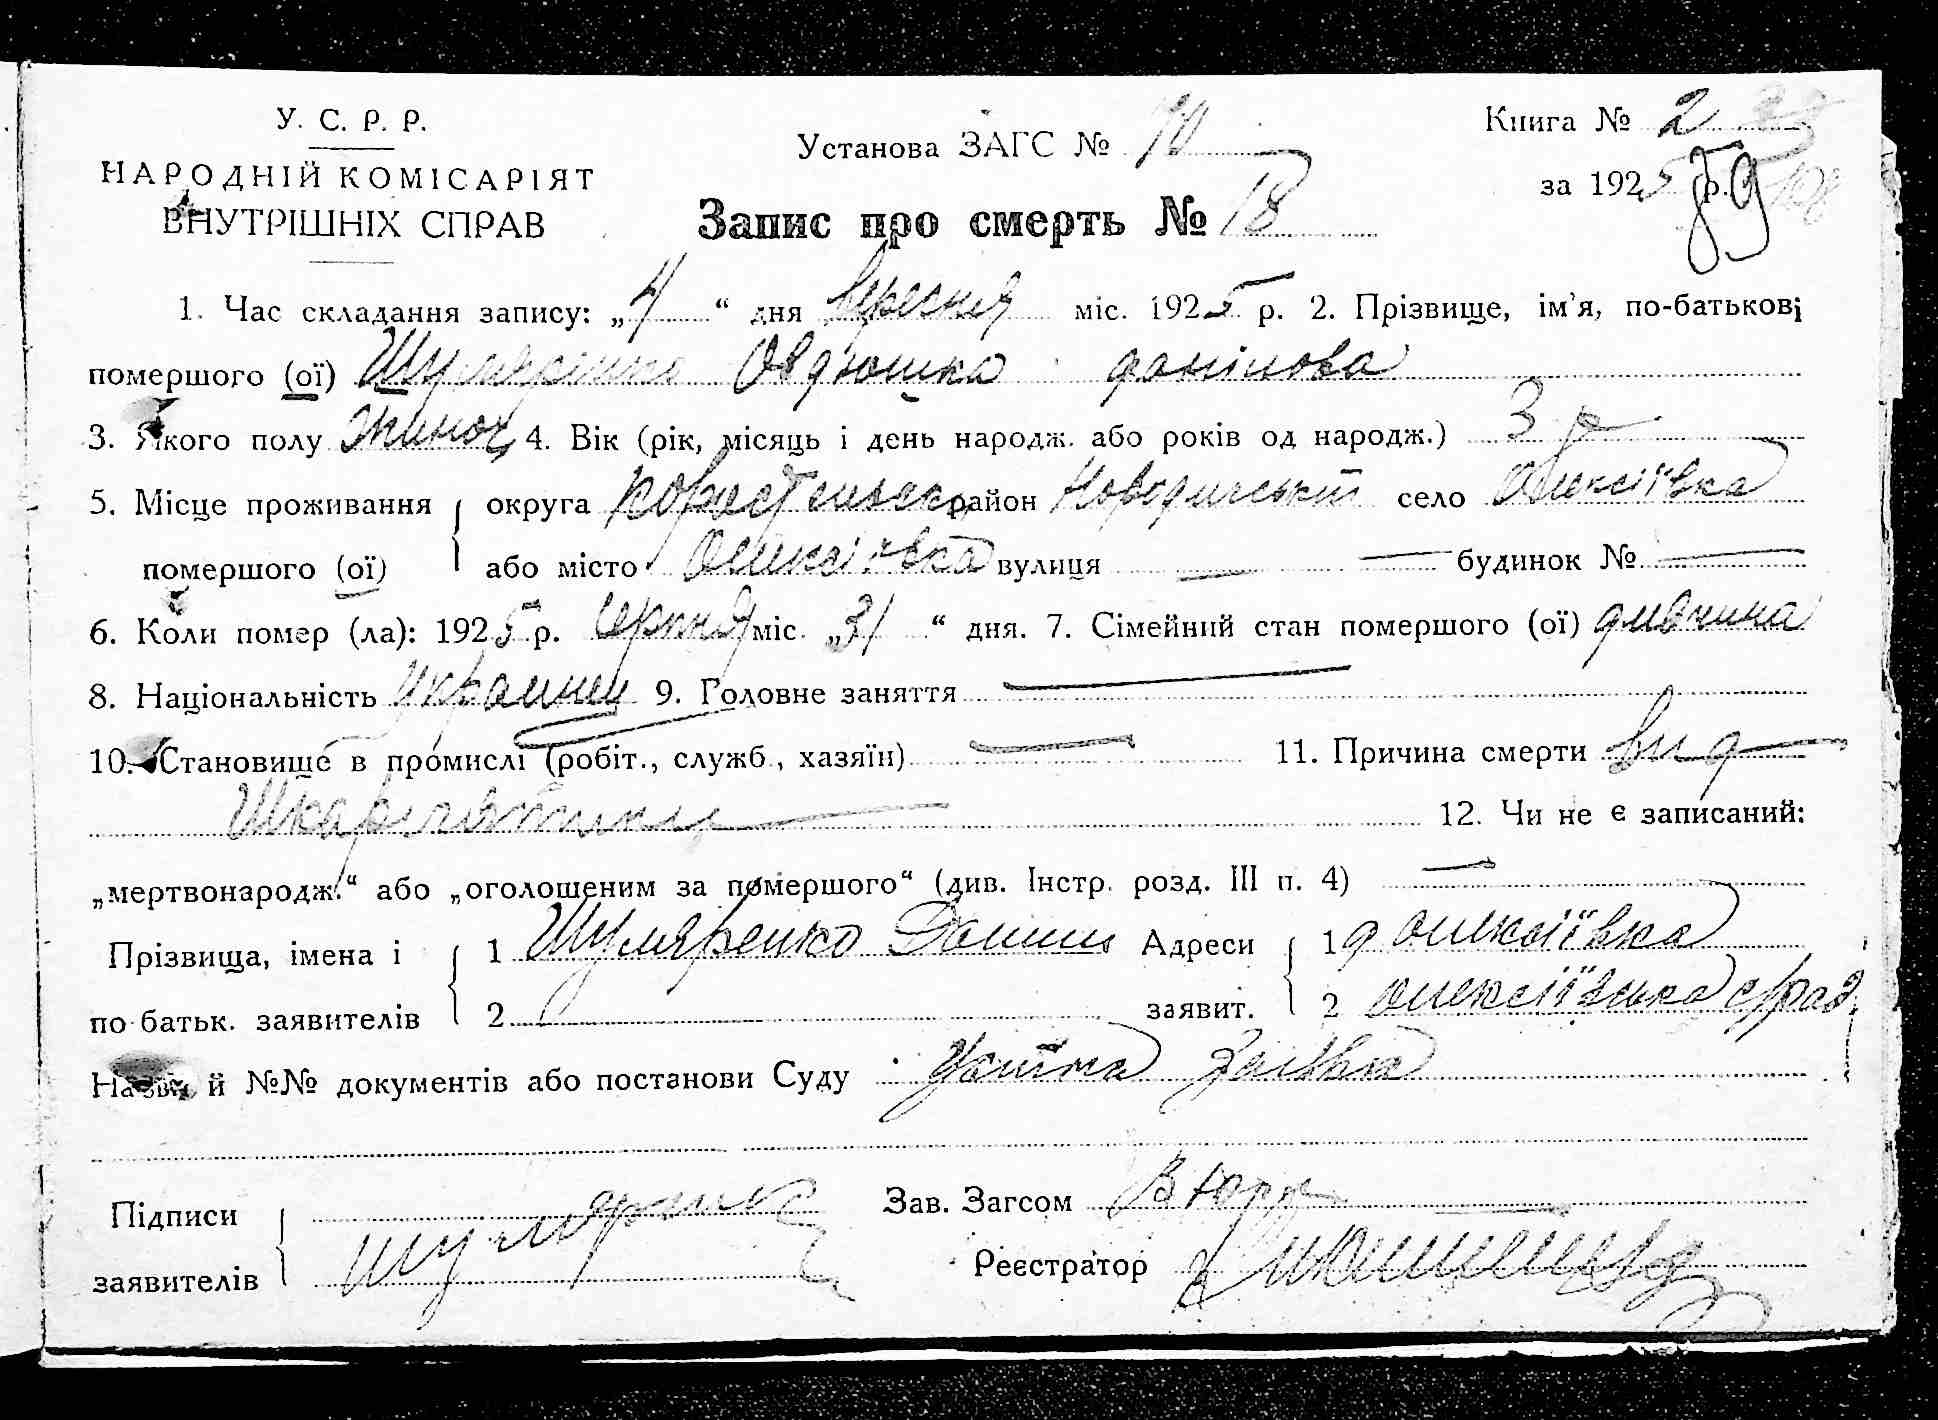 У. С. Р. Р.
НАРОДНІЙ КОМІСАРІЯТ
ВНУТРІШНІХ СПРАВ
Установа ЗАГС №
Книга № 2
за 1925 р. 59
Запис про смерть № 18
1. Час складання запису: „4“ дня вересня міс. 1925 р. 2. Прізвище, ім'я, по-батькові
помершого (ої) Шуляренко Овдюшка данілова
3. Якого полу жиноч. 4. Вік (рік, місяць і день народж. або років од народж.) 3 р
5. Місце проживання помершого (ої) округа Коростенська район село Олексіївка
або місто Олексіївка вулиця — будинок № —
6. Коли помер (ла): 1925 р. серпня міс. „31“ дня. 7. Сімейний стан помершого (ої) дивчина
8. Національність украинец 9. Головне заняття —
10. Становище в промислі (робіт., служб., хазяїн) — 11. Причина смерти вид
Шкарлятини — 12. Чи не є записаний:
„мертвонародж.“ або „оголошеним за помершого“ (див. Інстр. розд. III п. 4) —
Прізвища, імена і по батьк. заявителів 1 Шуляренко Данило Адреси заявит. 1 д Олексіївка
2 2 Олексіївська с/рад.
Назви й №№ документів або постанови Суду Устна Заявка
Підписи заявителів Шуляренк Зав. Загсом
Реєстратор